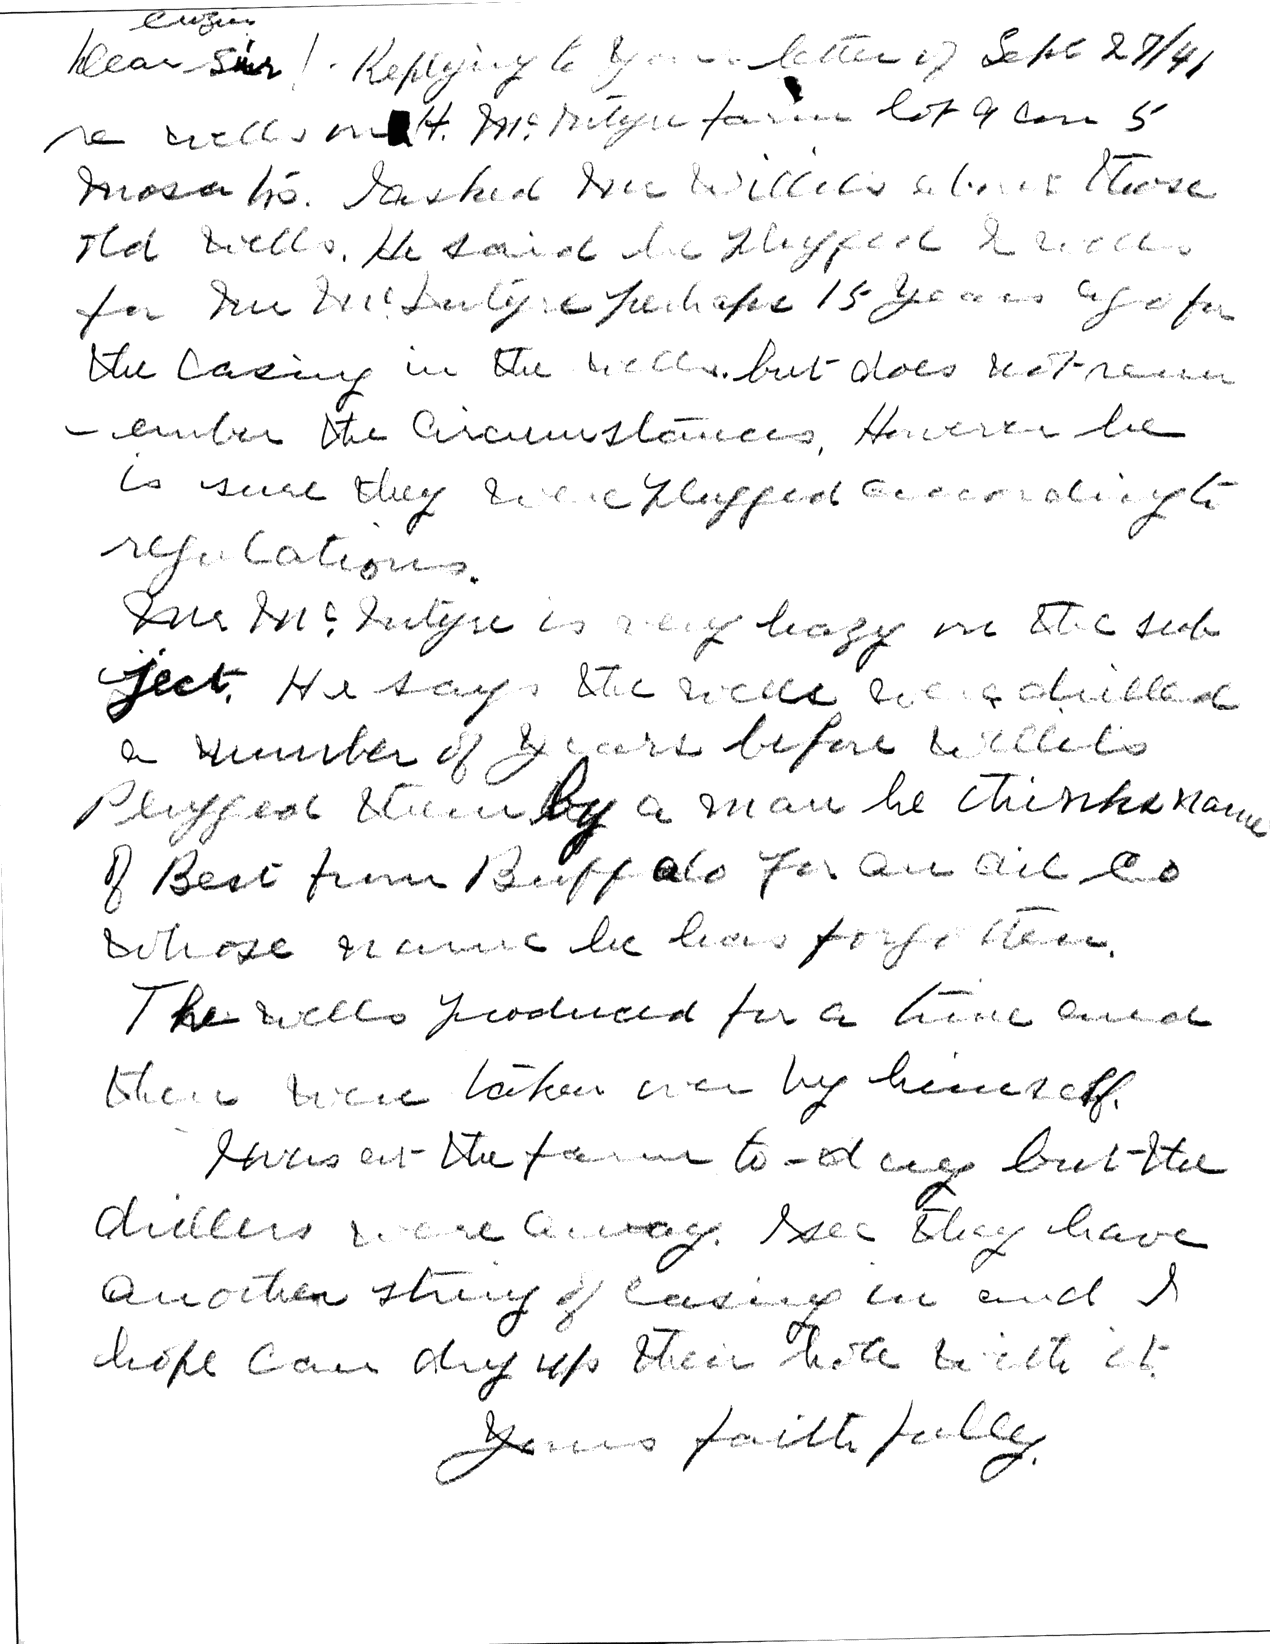 Dear Sir! - Replying to Your letter of Sept 27/41
re wells on H. McIntyre farm lot 9 Con 5
Mosa tp. I asked Mr Willits about those
old wells. He said he plugged 2 wells
for Mr McIntyre perhaps 15 Years ago for
the Casing in the wells. but does not rem
-ember the Circumstances, However he
is sure they were plugged according to
regulations.
Mr McIntyre is very hazy on the sub
ject. He says the wells were drilled
a number of Years before Willits
Plugged them by a man he thinks name
of Best from Buffalo for an oil Co
whose name he has forgotten.
The wells produced for a time and
then were taken over by himself.
I was at the farm to-day but the
drillers were away. I see they have
another string of casing in and I
hope can dry up their hole with it.
Yours faithfully.